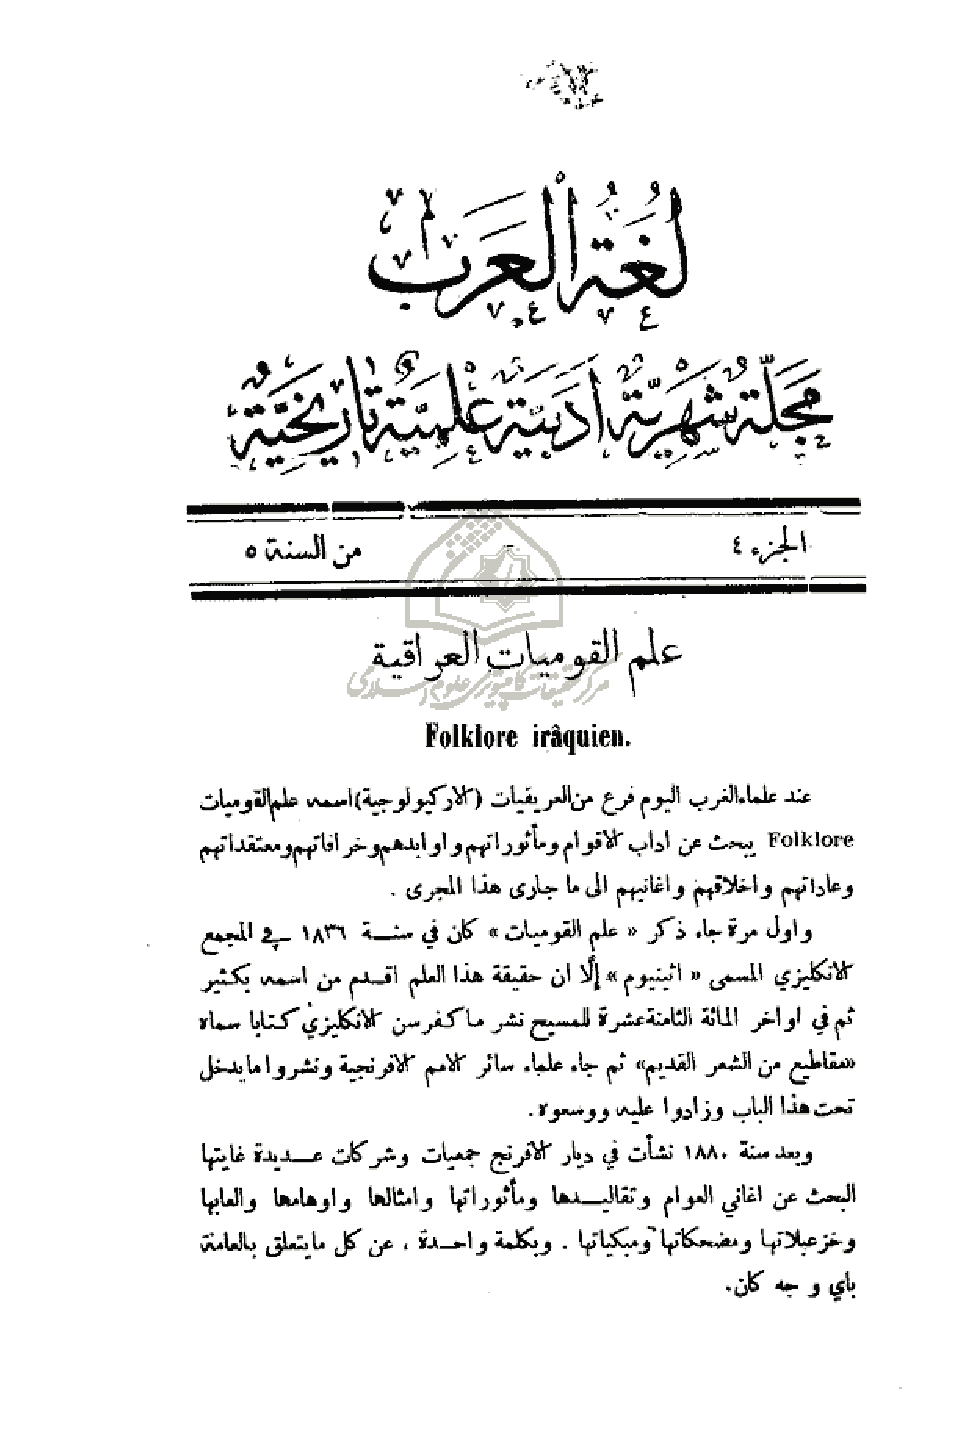 لُغَةُ الْعَرَبِ
مَجَلَّةٌ شَهْرِيَّةٌ أَدَبِيَّةٌ عِلْمِيَّةٌ تَارِيخِيَّةٌ
الجزء ٤ - من السنة ٥
علم القوميات العراقية
مركز تحقیقات کامپیوتری علوم اسلامی
Folklore irâquien.
عند علماء الغرب اليوم فرع من العريقيات (الاركيولوجية) اسمه علم القوميات
Folklore يبحث عن اداب الاقوام ومأثوراتهم واوابدهم وخرافاتهم ومعتقداتهم
وعاداتهم واخلاقهم واغانيهم الى ما جارى هذا المجرى .
واول مرة جاء ذكر « علم القوميات » كان في سنـــة ١٨٣٦ في المجمع
الانكليزي المسمى « اثينيوم » إلّا ان حقيقة هذا العلم اقـدم من اسمه بكثير
ثم في اواخر المائة الثامنة عشرة للمسيح نشر ماكفرسن الانكليزي كتابا سماه
«مقاطيع من الشعر القديم» ثم جاء علماء سائر الامم الافرنجية ونشروا ما يدخل
تحت هذا الباب وزادوا عليه ووسعوه .
وبعد سنة ١٨٨٠ نشأت في ديار الافرنج جمعيات وشركات عـــديدة غايتها
البحث عن اغاني العوام وتقاليـــدها ومأثوراتها وامثالها واوهامها والعابها
وخزعبلاتها ومضحكاتها ومبكياتها . وبكلمة واحـدة ، عن كل ما يتعلق بالعامة
باي وجه كان.